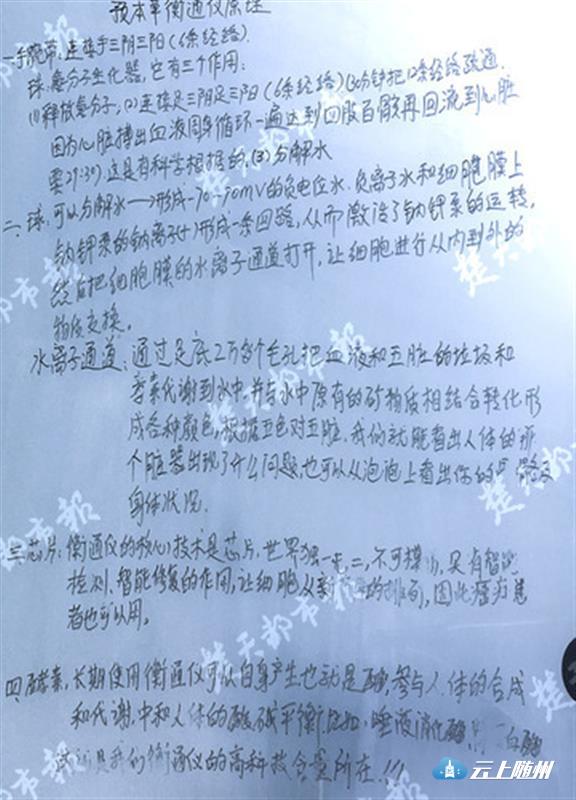 颐本草衡通仪原理
一、手腕带:连接手三阴三阳(6条经络).
球:意分子生化器,它有三个作用:
(1)释放意分子,(2)连接足三阴足三阳(6条经络)(30分钟把12条经络疏通
因为心脏搏出血液周身循环一遍达到四肢百骸再回流到心脏
要29:30).这是有科学根据的,(3)分解水
二、球:可以分解水→形成-70-90mV的负电位水.负离水和细胞膜上
钠钾泵的钠离子(+)形成一条回路,从而激活了钠钾泵的运转,
然后把细胞膜的水离子通道打开,让细胞进行从内到外的
物质交换。
水离子通道:通过足底2万多个毛孔把血液和五脏的垃圾和
毒素代谢到水中并与水中原有的矿物质相结合转化形
成各种颜色,根据五色对五脏.我们就能看出人体的哪
个脏器出现了什么问题,也可以从泡泡上看出你的
身体状况.
三、芯片:衡通仪的核心技术是芯片.世界独一无二,不可
检测、智能修复的作用,让细胞从新的排列,因此癌症患
者也可以用。
四、酵素,长期使用衡通仪可以自身产生也就是酶,参与人体的合成
和代谢.中和人体的酸碱平衡 唾液消化酶,
是我们衡通仪的高科技含量所在!!!
楚天都市报
云上随州